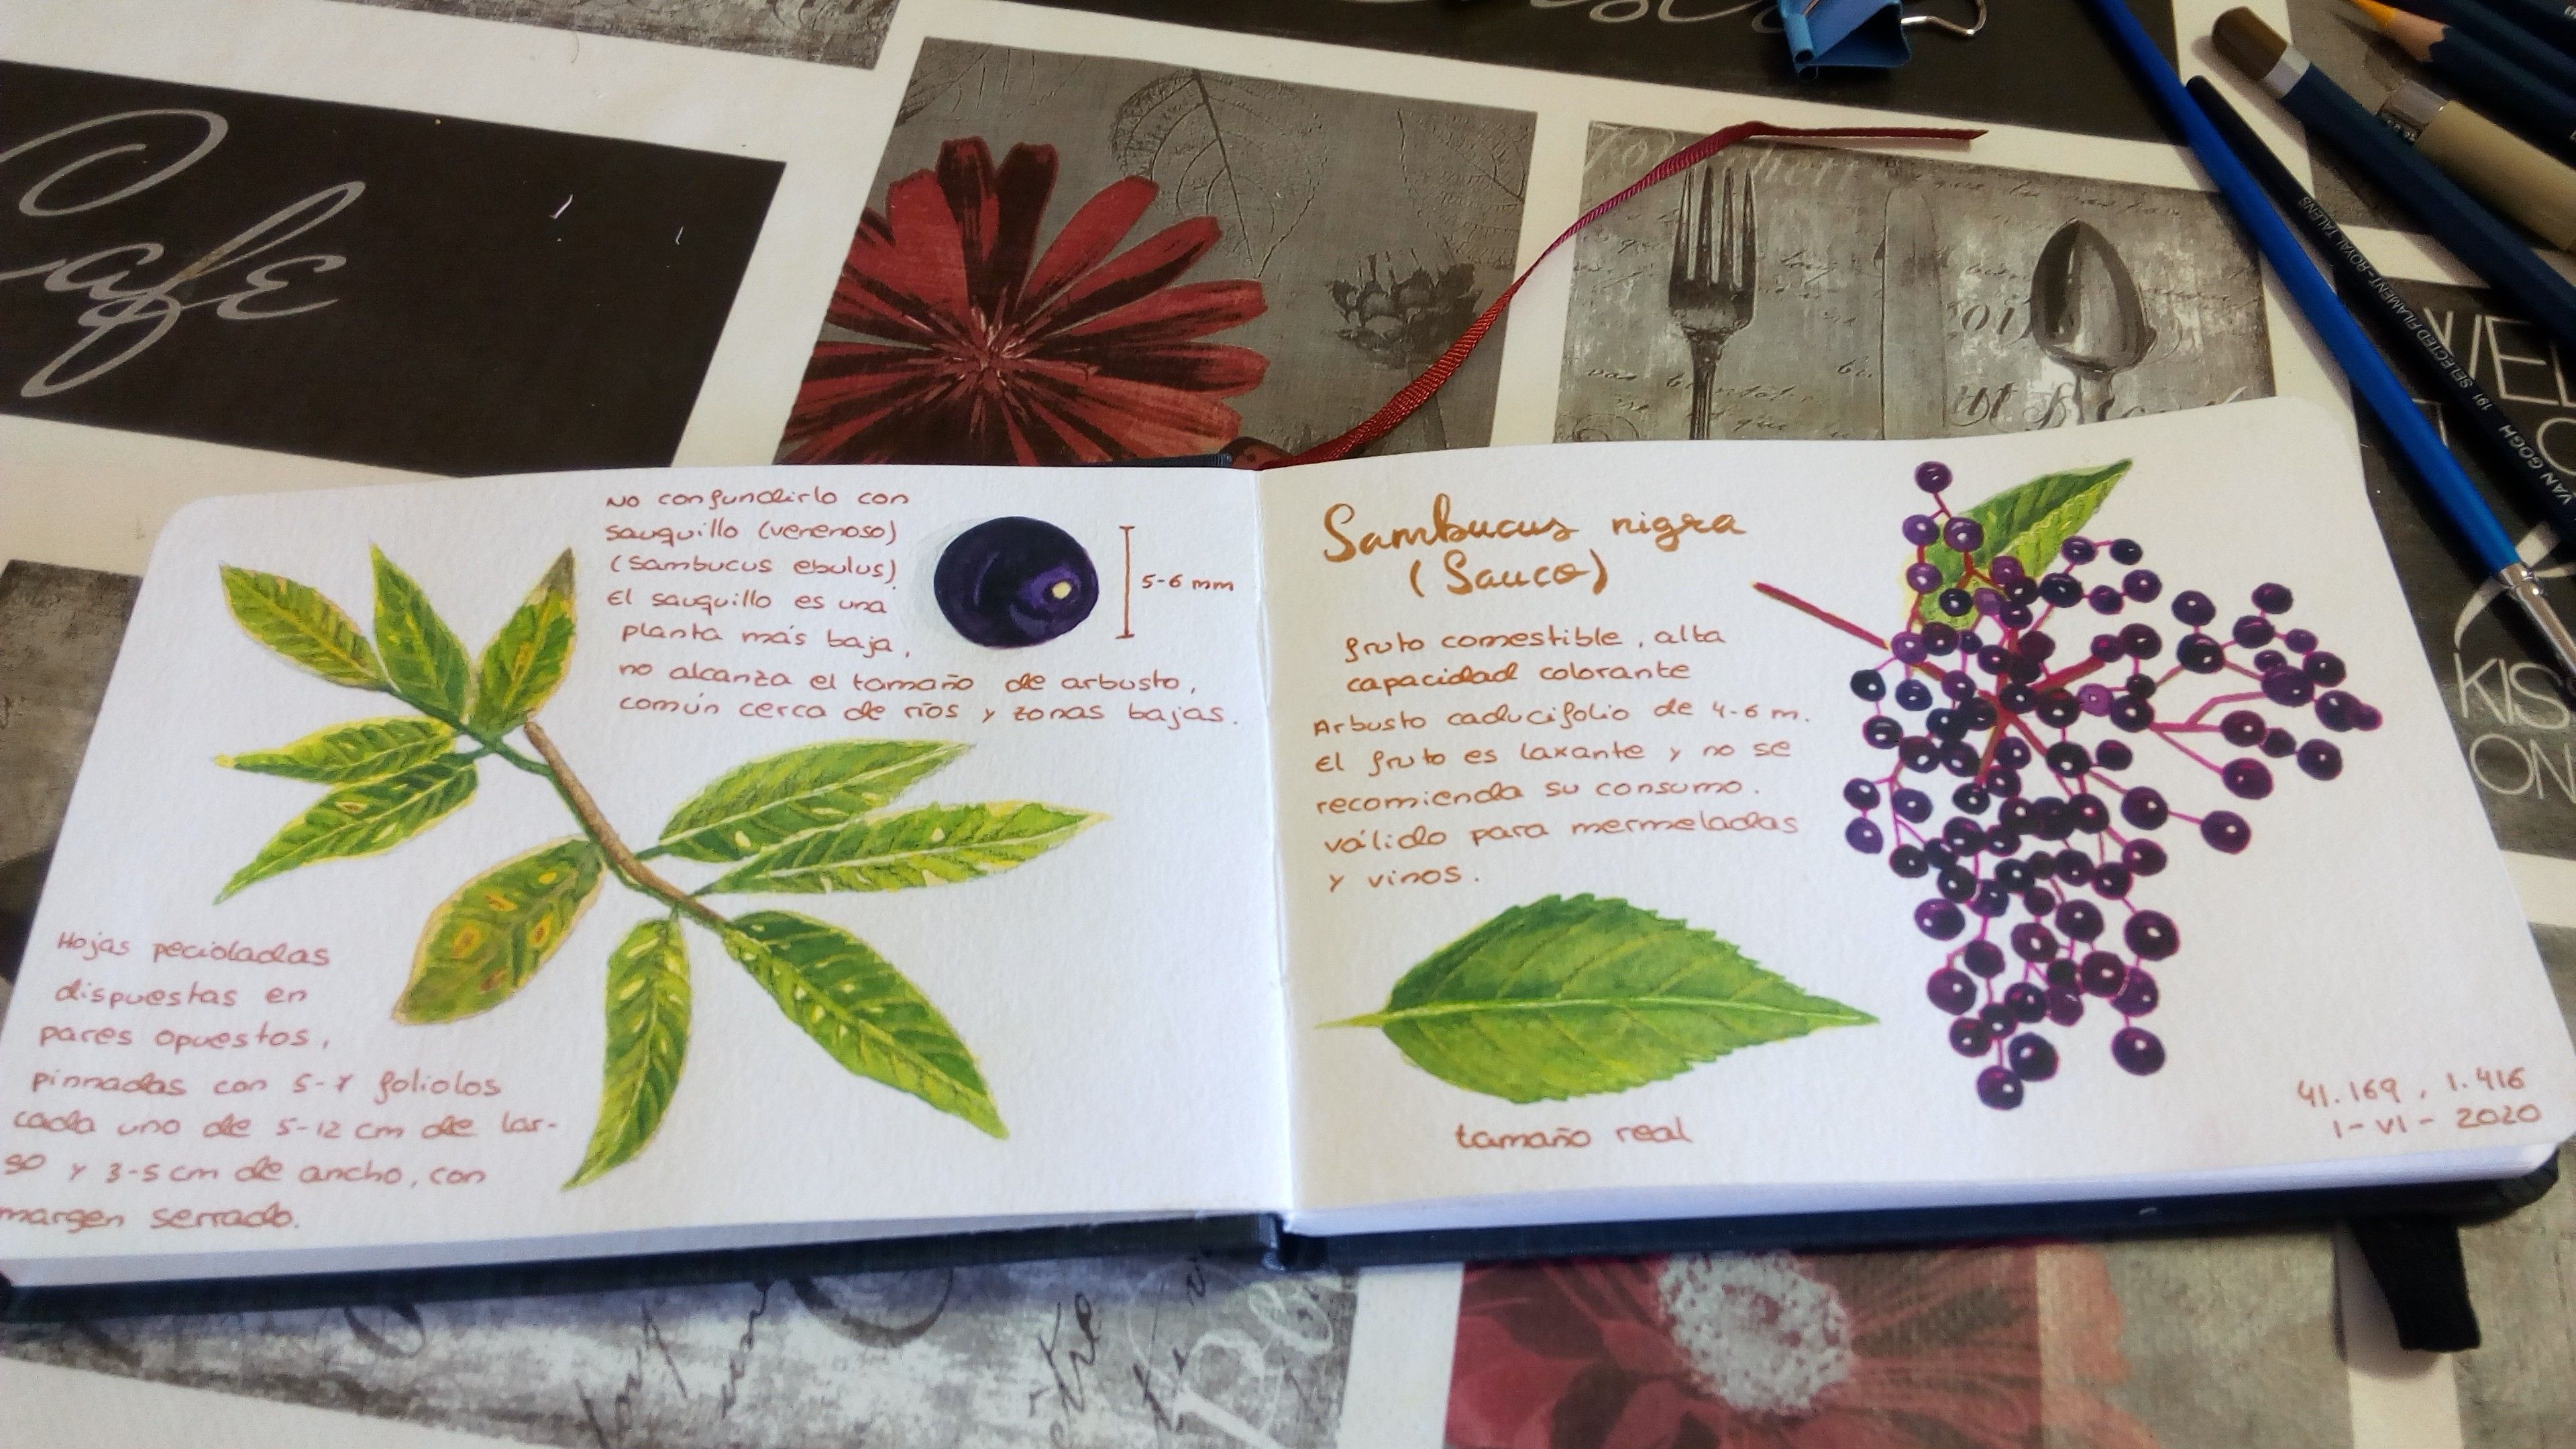 Café
No confundirlo con
sauquillo (venenoso)
(sambucus ebulus).
El sauquillo es una
planta más baja,
no alcanza el tamaño de arbusto,
común cerca de ríos y zonas bajas.
5-6 mm
Hojas pecioladas
dispuestas en
pares opuestos,
pinnadas con 5-7 foliolos
cada uno de 5-12 cm de lar-
go y 3-5 cm de ancho, con
margen serrado.
Sambucus nigra
(Sauco)
fruto comestible, alta
capacidad colorante
Arbusto caducifolio de 4-6 m.
El fruto es laxante y no se
recomienda su consumo.
válido para mermeladas
y vinos.
tamaño real
41.169, 1.416
1-VI-2020
191 VAN GOGH SELECTED FILAMENT-ROYAL TALENS
KIS
ON